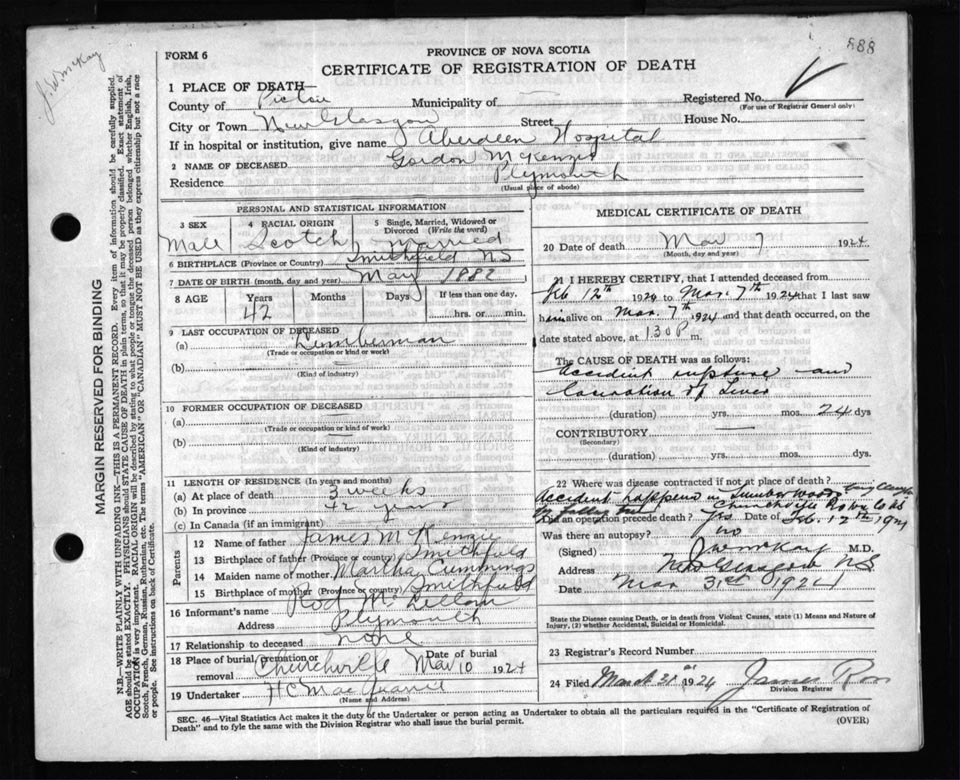 888
J.W. McKay
FORM 6
PROVINCE OF NOVA SCOTIA
CERTIFICATE OF REGISTRATION OF DEATH
1 PLACE OF DEATH—
County of Pictou Municipality of — Registered No.
(For use of Registrar General only)
City or Town New Glasgow Street House No.
If in hospital or institution, give name Aberdeen Hospital
2 NAME OF DECEASED Gordon McKenzie
Residence Plymouth
(Usual place of abode)
MARGIN RESERVED FOR BINDING
N.B.—WRITE PLAINLY WITH UNFADING INK—THIS IS A PERMANENT RECORD. Every item of information should be carefully supplied.
AGE should be stated EXACTLY. PHYSICIANS should STATE CAUSE OF DEATH in plain terms, so that it may be properly classified. Exact statement of
OCCUPATION is very important. RACIAL ORIGIN will be described by stating to what people or tongue the deceased person belonged whether English, Irish,
Scotch, French, German, Russian, Ruthenian, etc. The terms "AMERICAN" OR "CANADIAN" MUST NOT BE USED as they express citizenship but not a race
or people. See instructions on back of Certificate.
PERSONAL AND STATISTICAL INFORMATION
3 SEX 4 RACIAL ORIGIN 5 Single, Married, Widowed or
Divorced (Write the word)
Male Scotch Married
6 BIRTHPLACE (Province or Country) Smithfield NS
7 DATE OF BIRTH (month, day and year) May 1882
8 AGE Years Months Days If less than one day,
42 hrs. or min.
9 LAST OCCUPATION OF DECEASED
(a) Lumberman
(Trade or occupation or kind or work)
(b)
(Kind of industry)
10 FORMER OCCUPATION OF DECEASED
(a) —
(Trade or occupation or kind or work)
(b) —
(Kind of industry)
11 LENGTH OF RESIDENCE (In years and months)
(a) At place of death 3 weeks
(b) In province 42 years
(c) In Canada (if an immigrant)
Parents
12 Name of father James McKenzie
13 Birthplace of father (Province or Country) Smithfield
14 Maiden name of mother Martha Cummings
15 Birthplace of Mother (Province or Country) Smithfield
16 Informant's name Rod McLellan
Address Plymouth
17 Relationship to deceased none
18 Place of burial, cremation or Date of burial
removal Churchville Mar 10 1924
19 Undertaker H C MacQuarrie
(Name and Address)
MEDICAL CERTIFICATE OF DEATH
20 Date of death Mar 7 1924
(Month, day and year)
21 I HEREBY CERTIFY, that I attended deceased from
Feb 12th 1924 to Mar. 7th 1924 that I last saw
him alive on Mar. 7th 1924 and that death occurred, on
date stated above, at 130 P m.
The CAUSE OF DEATH was as follows:
Accident rupture and
laceration of Liver
(duration) yrs. mos. 24 dys
CONTRIBUTORY —
(Secondary)
(duration) yrs. mos. dys.
22 Where was disease contracted if not at place of death?
Accident happened in Lumber Woods
by falling tree Churchville
Did an operation precede death? Yes Date of Feb. 12th 1924
Was there an autopsy? no
(Signed) J W McKay M.D.
Address New Glasgow NS
Date Mar 31st 1924
State the Disease causing Death, or in death from Violent Causes, state (1) Means and Nature of
Injury, (2) whether Accidental, Suicidal or Homicidal.
23 Registrar's Record Number
24 Filed March 31st 1924 James Ross
Division Registrar
SEC. 46—Vital Statistics Act makes it the duty of the Undertaker or person acting as Undertaker to obtain all the particulars required in the "Certificate of Registration of
Death" and to fyle the same with the Division Registrar who shall issue the burial permit. (OVER)